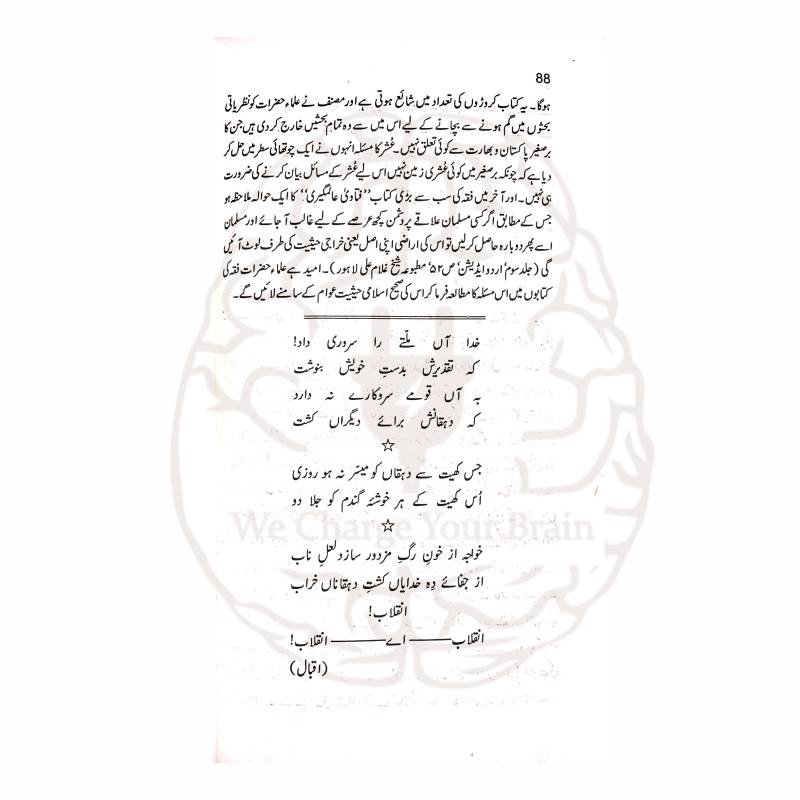 88
ہوگا۔ یہ کتاب کروڑوں کی تعداد میں شائع ہوتی ہے اور مصنف نے علماء حضرات کو نظریاتی
بحثوں میں گم ہونے سے بچانے کے لیے اس میں سے وہ تمام بحثیں خارج کر دی ہیں جن کا
برصغیر پاکستان و بھارت سے کوئی تعلق نہیں۔ عُشر کا مسئلہ انہوں نے ایک چوتھائی سطر میں حل کر
دیا ہے کہ چونکہ برصغیر میں کوئی عشری زمین نہیں اس لیے عُشر کے مسائل بیان کرنے کی ضرورت
ہی نہیں۔ اور آخر میں فقہ کی سب سے بڑی کتاب ’’فتاویٰ عالمگیری‘‘ کا ایک حوالہ ملاحظہ ہو
جس کے مطابق اگر کسی مسلمان علاقے پر دشمن کچھ عرصے کے لیے غالب آ جائے اور مسلمان
اسے پھر دوبارہ حاصل کر لیں تو اس کی اراضی اپنی اصل یعنی خراجی حیثیت کی طرف لوٹ آئیں
گی (جلد سوم‘ اردو ایڈیشن‘ ص ۵۲‘ مطبوعہ شیخ غلام علی لاہور)۔ امید ہے علماء حضرات فقہ کی
کتابوں میں اس مسئلہ کا مطالعہ فرما کر اس کی صحیح اسلامی حیثیت عوام کے سامنے لائیں گے۔
خدا آں ملّتے را سروری داد!
کہ تقدیرش بدستِ خویش بنوشت
بہ آں قومے سروکارے نہ دارد
کہ دہقانش برائے دیگراں کشت
☆
جس کھیت سے دہقاں کو میسّر نہ ہو روزی
اُس کھیت کے ہر خوشۂ گندم کو جلا دو
☆
خواجہ از خونِ رگِ مزدور سازد لعلِ ناب
از جفائے دِہ خدایاں کشتِ دہقاناں خراب
انقلاب!
انقلاب——اے——انقلاب!
(اقبال)
We Charge Your Brain